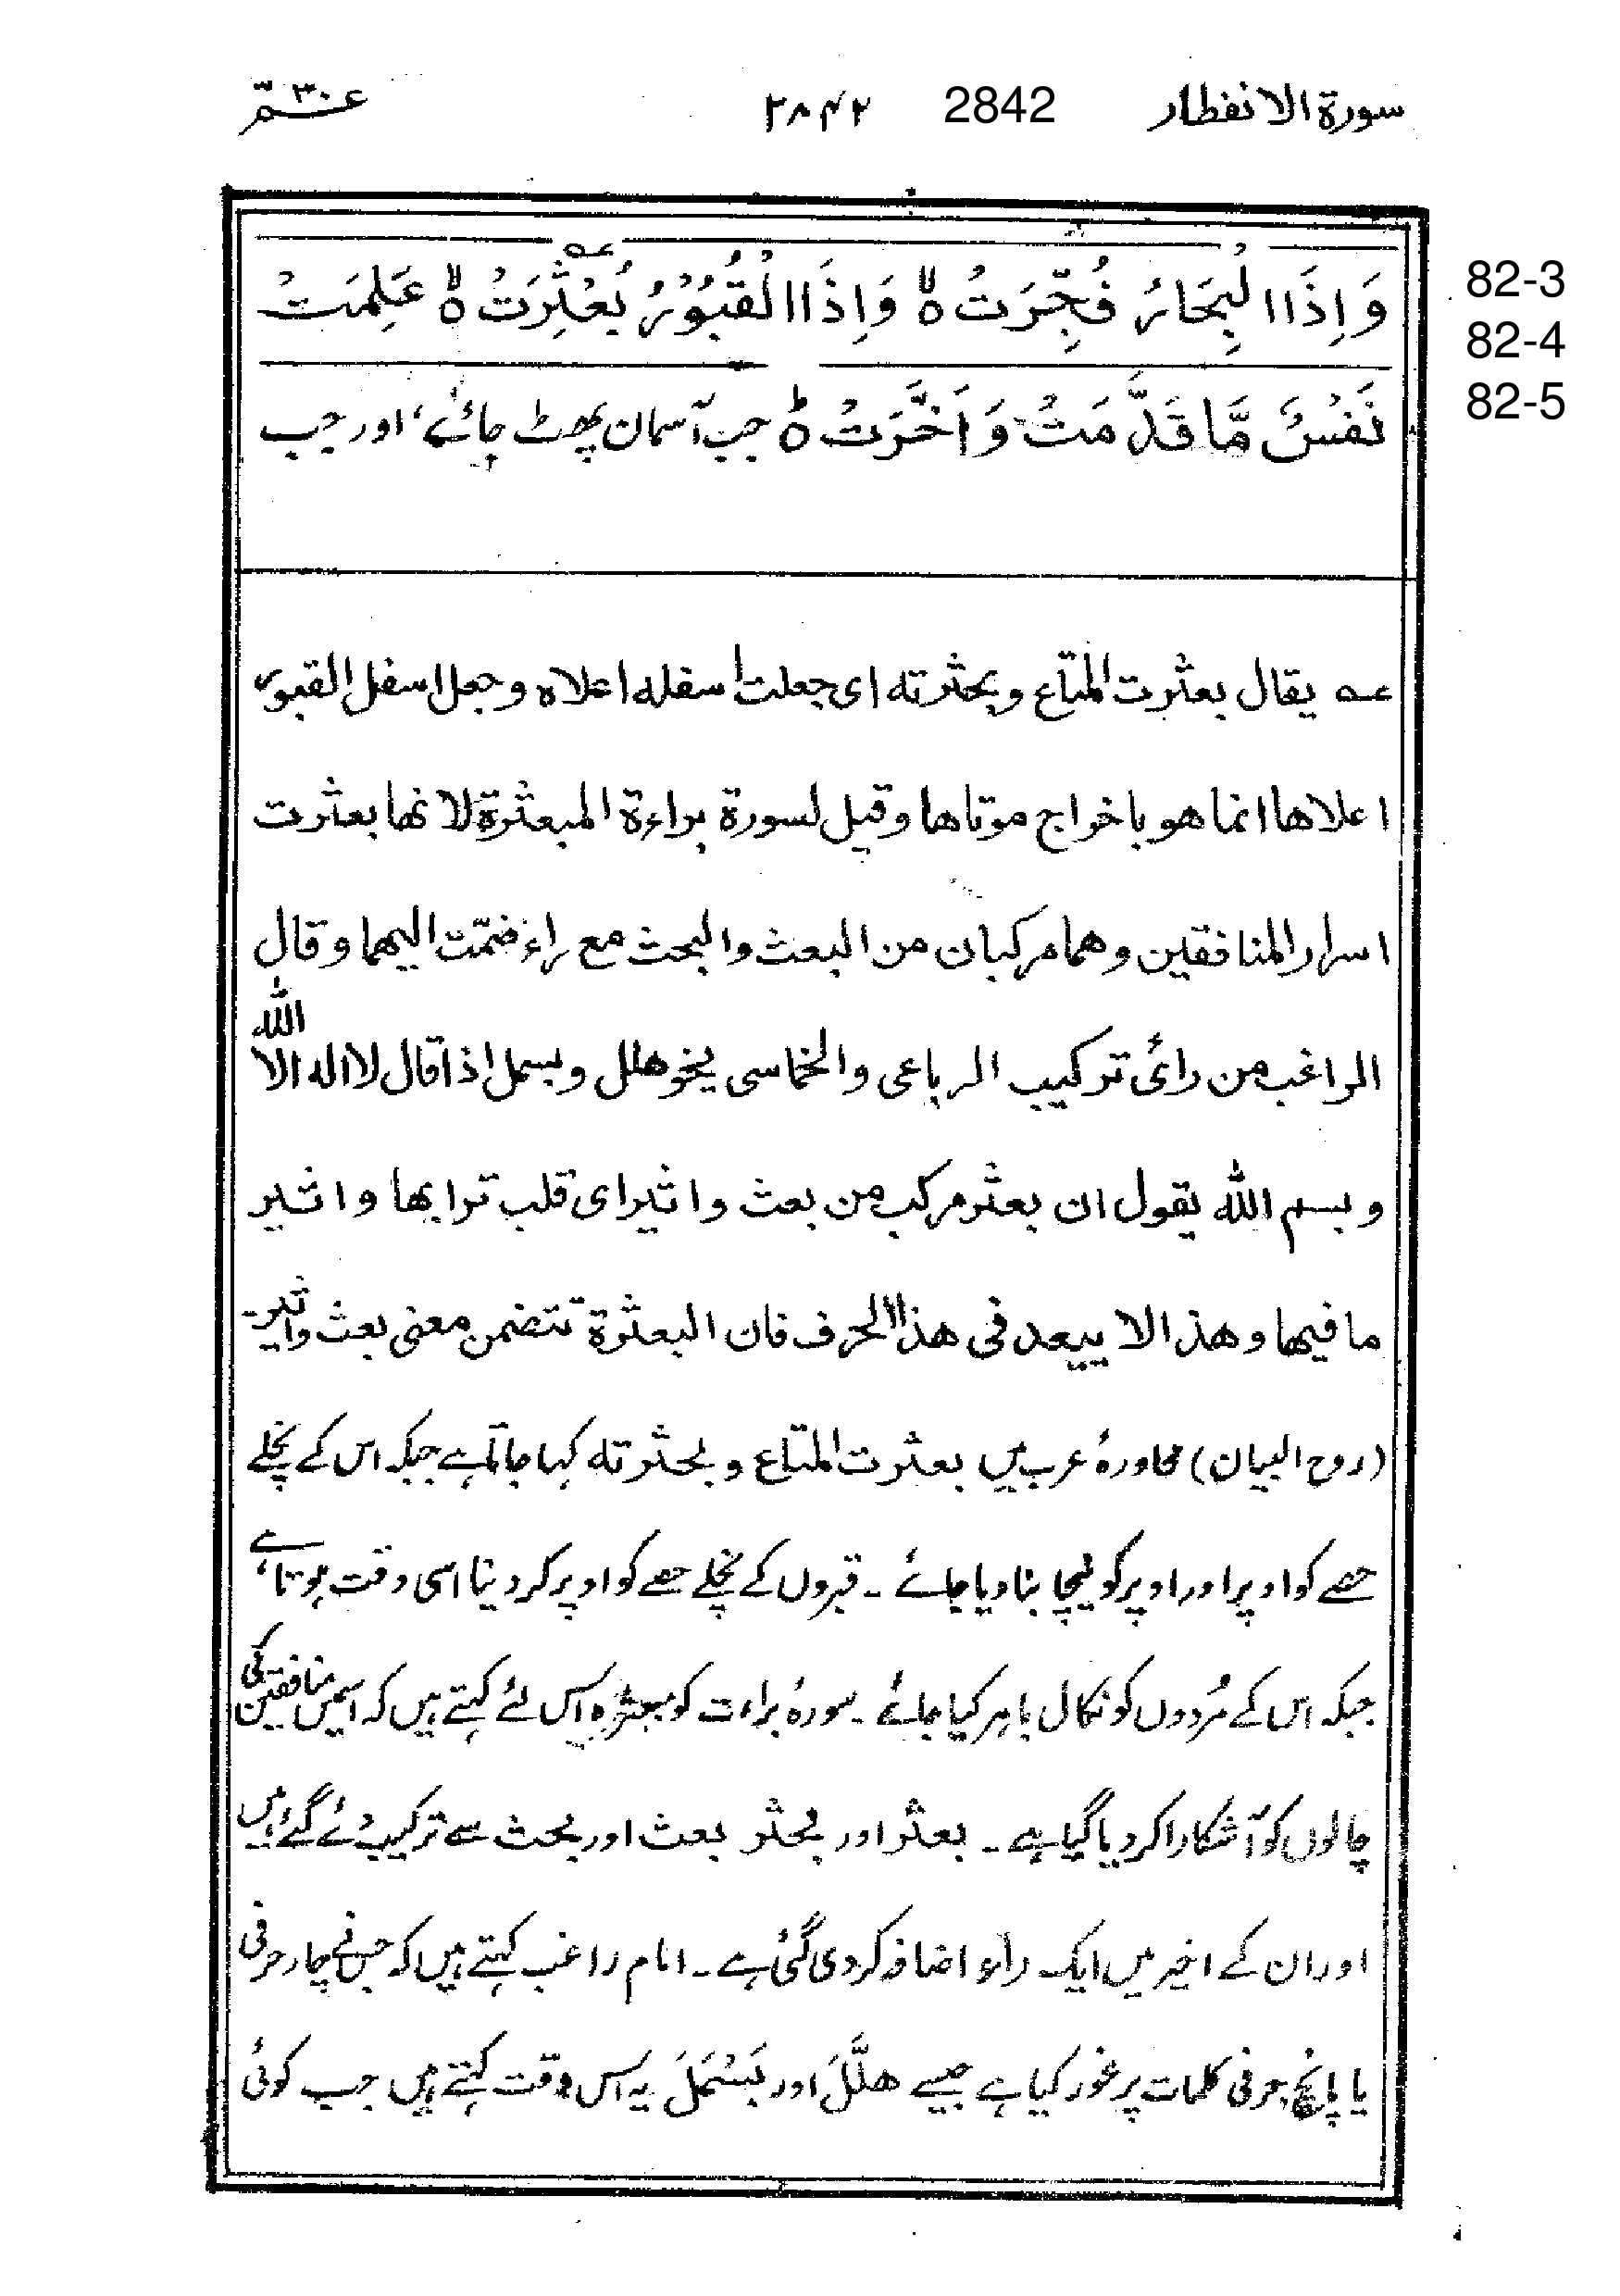 سورة الانفطار 2842 ۲۸۴۲ عـمّ ۳۰
وَ اِذَا الْبِحَارُ فُجِّرَتْ ۙ‏ وَ اِذَا الْقُبُوْرُ بُعْثِرَتْ ۙ‏ عَلِمَتْ
82-3
82-4
نَفْسٌ مَّا قَدَّمَتْ وَ اَخَّرَتْ ؕ جب آسمان پھٹ جائے، اور جب
82-5
عہ یقال بعثرت المتاع وبحثرته ای جعلت اسفله اعلاه وجعل اسفل القبور
اعلاها انما هو باخراج موتاها وقیل لسورة براءة المبعثرة لانها بعثرت
اسرار المنافقین وهما مرکبان من البعث والبحث مع راء ضمّت الیهما وقال
الراغب من رائ ترکیب الرباعی والخماسی نحو هلل وبسمل اذا قال لا اله الا الله
وبسم الله یقول ان بعثر مرکب من بعث واثیر ای قلب ترابها واثیر
ما فیها وهذا لا یبعد فی هذا الحرف فان البعثرة تتضمن معنی بعث واثیر۔
(روح البیان) محاورۂ عرب میں بعثرت المتاع وبحثرته کہا جاتا ہے جبکہ اس کے نچلے
حصے کو اوپر اور اوپر کو نیچا بنا دیا جائے ۔ قبروں کے نچلے حصے کو اوپر کر دینا اسی وقت ہوتا ہے،
جبکہ اس کے مُردوں کو نکال باہر کیا جائے ۔ سورۂ براءت کو مبعثرہ اس لئے کہتے ہیں کہ اسمیں منافقین کی
چالوں کو آشکارا کر دیا گیا ہے ۔ بعثر اور بحثر بعث اور بحث سے ترکیب دئے گئے ہیں
اور ان کے اخیر میں ایک راء اضافہ کر دی گئی ہے ۔ امام راغب کہتے ہیں کہ جس نے چار حرفی
یا پانچ حرفی کلمات پر غور کیا ہے جیسے هلَّلَ اور بَسْمَلَ یہ اس وقت کہتے ہیں جب کوئی